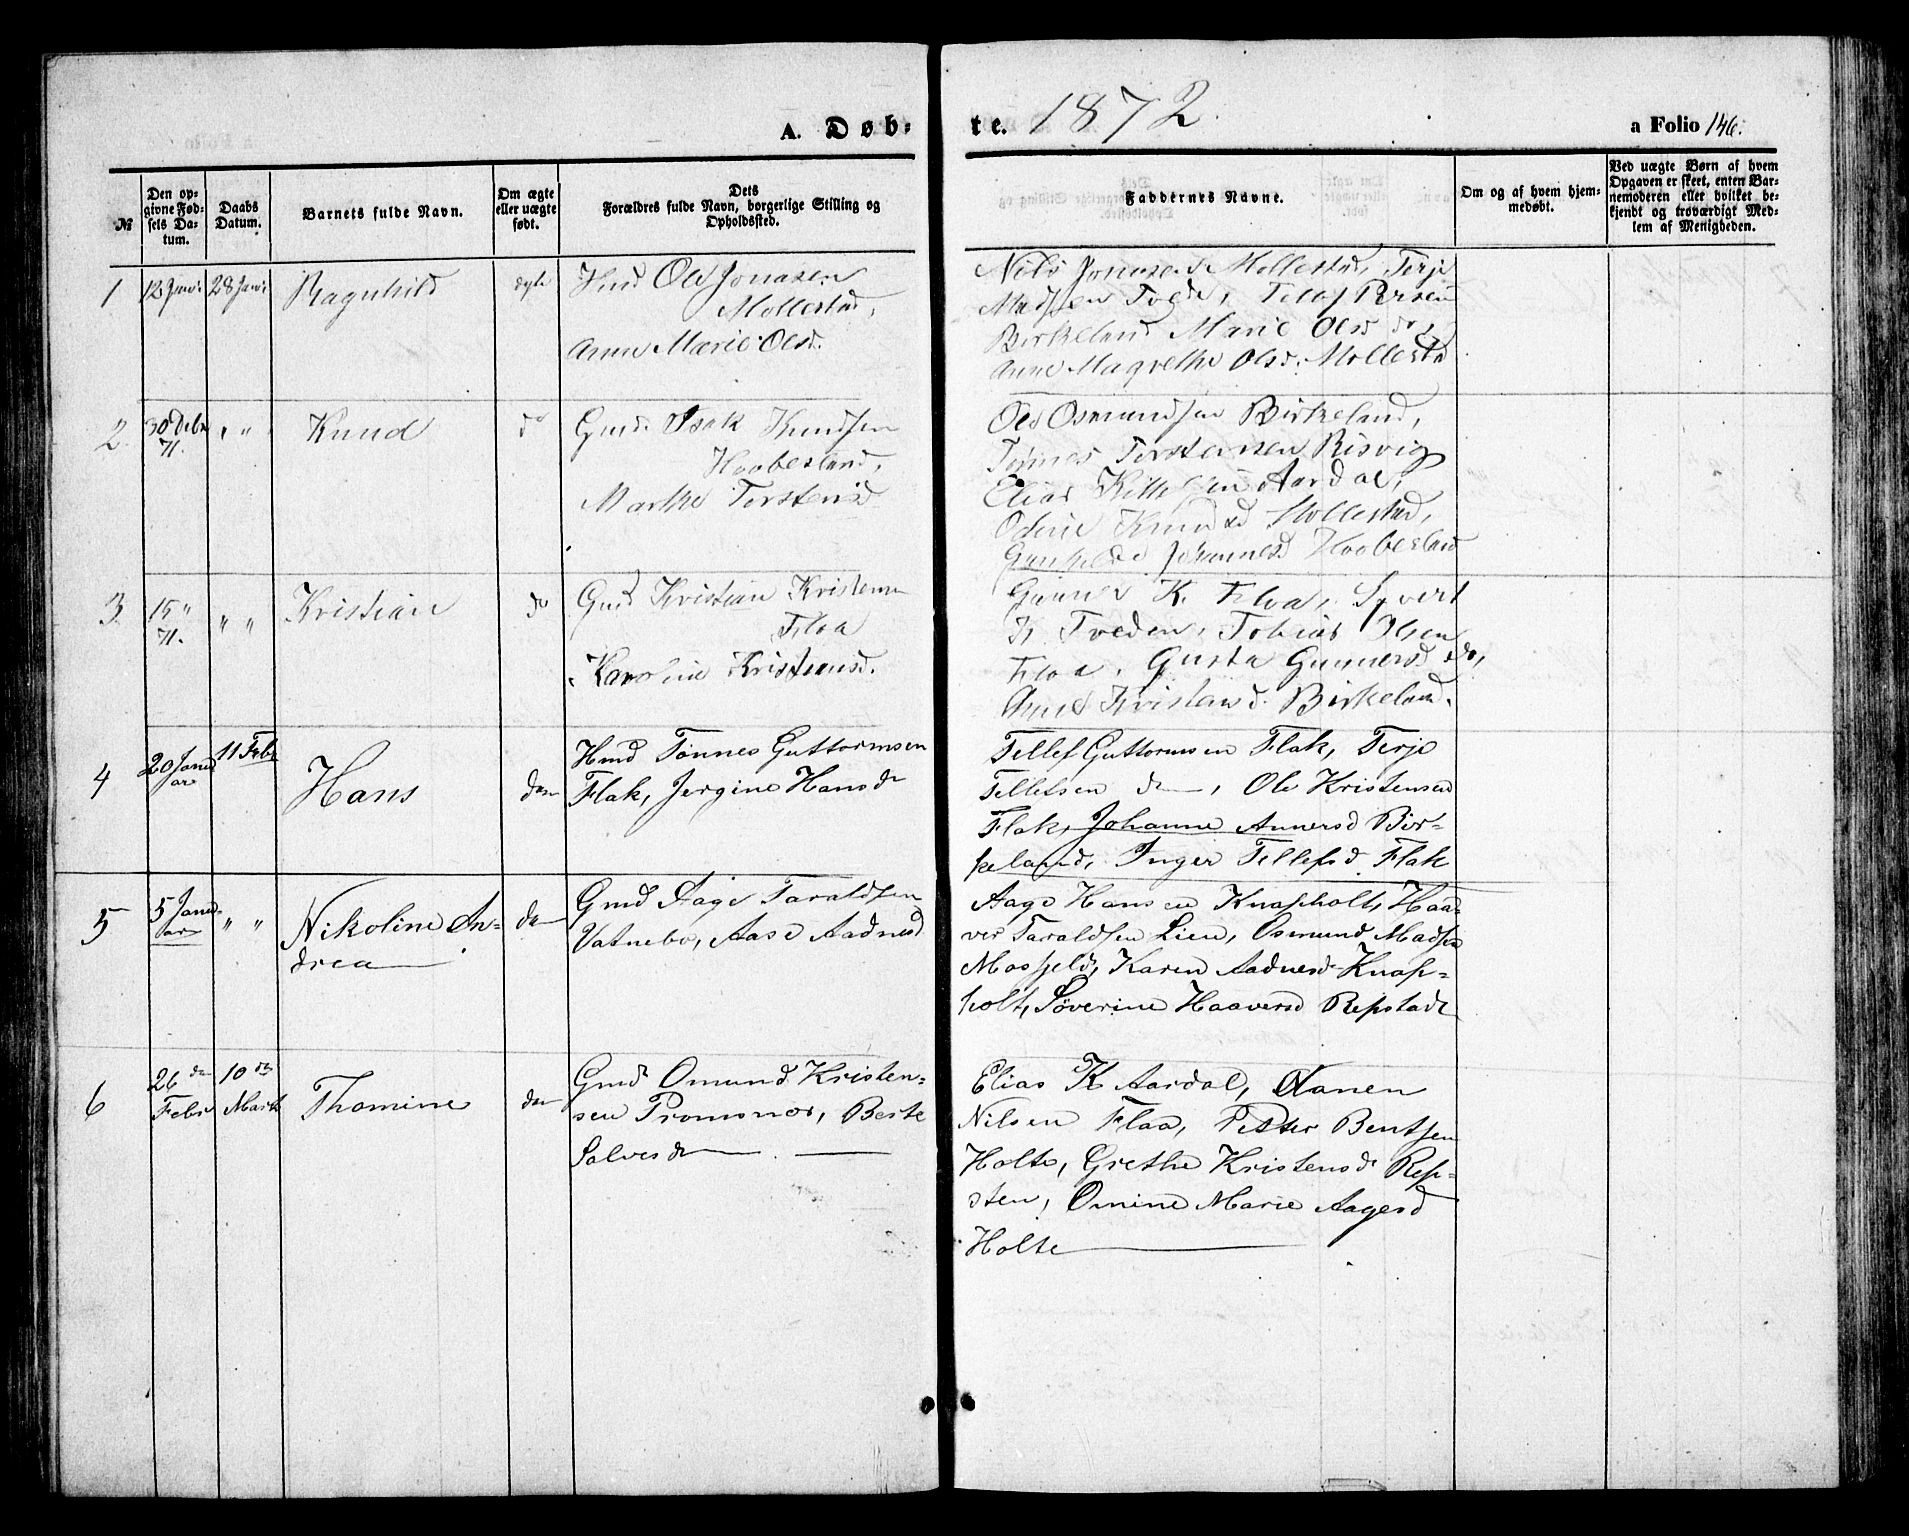 A. Døb-
te. 1872.
a Folio 146.
№
Den op-
givne Fød-
sels Da-
tum.
Daabs
Datum.
Barnets fulde Navn.
Om ægte
eller uægte
født.
Dets
Forældres fulde Navn, borgerlige Stilling og
Opholdssted.
Faddernes Navne.
Om og af hvem hjem-
medøbt.
Ved uægte Børn af hvem
Opgaven er skeet, enten Bar-
nemoderen eller hvilket be-
kjendt og troværdigt Med-
lem af Menigheden.
1
12 Janr
28 Janr
Ragnhild
ægte
Hmd Ole Jonasen
Mollestad,
Anne Marie Olsd.
Nils Jonasen Mollestad, Terje
Madssen Tvede, Tellef Persen
Birkeland Marie Olsd do,
Anne Magrethe Olsd. Mollestad
2.
30 Debr
71.
" "
Knud
do
Gmd. Isak Knudsen
Hoobesland,
Marthe Torstensd
Ole Osmundsen Birkeland,
Tønnes Torstensen Risvig
Elias Kittelsen Aardal,
Oderie Knudsd Mollestad,
Gunhilde Johannesd Hoobesland
3.
15 "
71.
" "
Kristian
do
Gmd Kristian Kristensen
Floa
Karoline Kristiansd.
Gunner K. Floa, Syvert
K. Tveden, Tobias Olsen
Floa, Gusta Gunnersd do,
Anne Kristensd. Birkeland.
4
20 Janu
ar
11 Febr
Hans
do
Hmd Tønnes Guttormsen
Flak, Jergine Hansd
Tellef Guttormsen Flak, Terje
Tellefsen do, Ole Kristensen
Flak, Johanne Annersd Bir-
keland, Inger Tellefsd Flak
5
5 Janu-
ar
" "
Nikoline An-
drea
do
Gmd Aage Taraldsen
Vatnebo, Aase Aadnesd
Aage Hansen Knapholt, Haa-
ver Taraldsen Lien, Osmund Madsen
Mosfjeld, Karen Aadnesd Knap-
holt, Søverine Haaversd Repstad
6
26 de
Febr
10 de
Marts
Thomine
do
Gmd Omund Kristen-
sen Promsnos, Berte
Salvesd
Elias K Aardal, Aanen
Nilsen Flaa, Petter Bentsen
Holte, Grethe Kristensd Rep-
sten, Omine Marie Aagesd
Holte